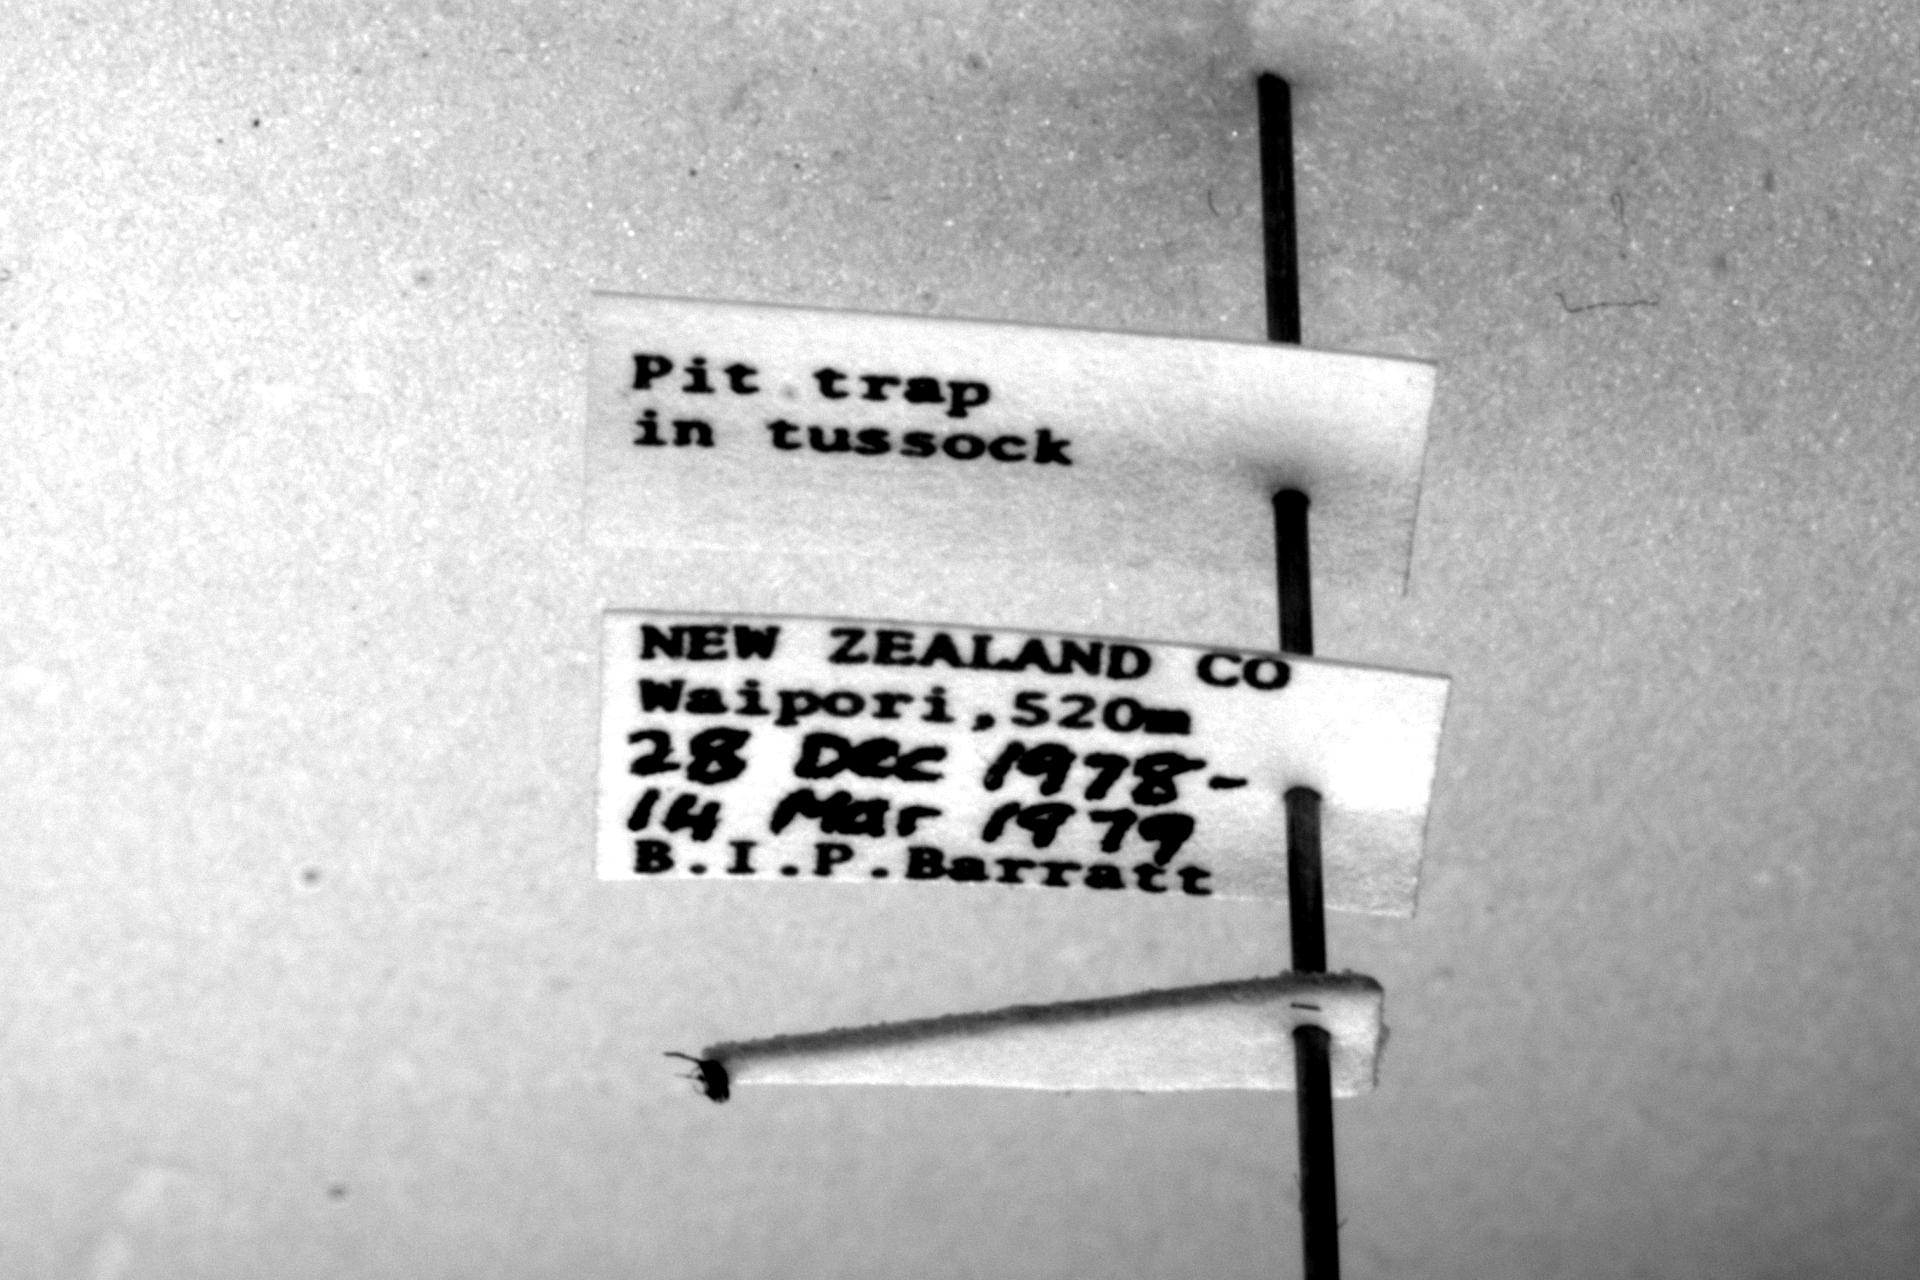 Pit trap
in tussock
NEW ZEALAND CO
Waipori,520m
28 Dec 1978-
14 Mar 1979
B.I.P.Barratt